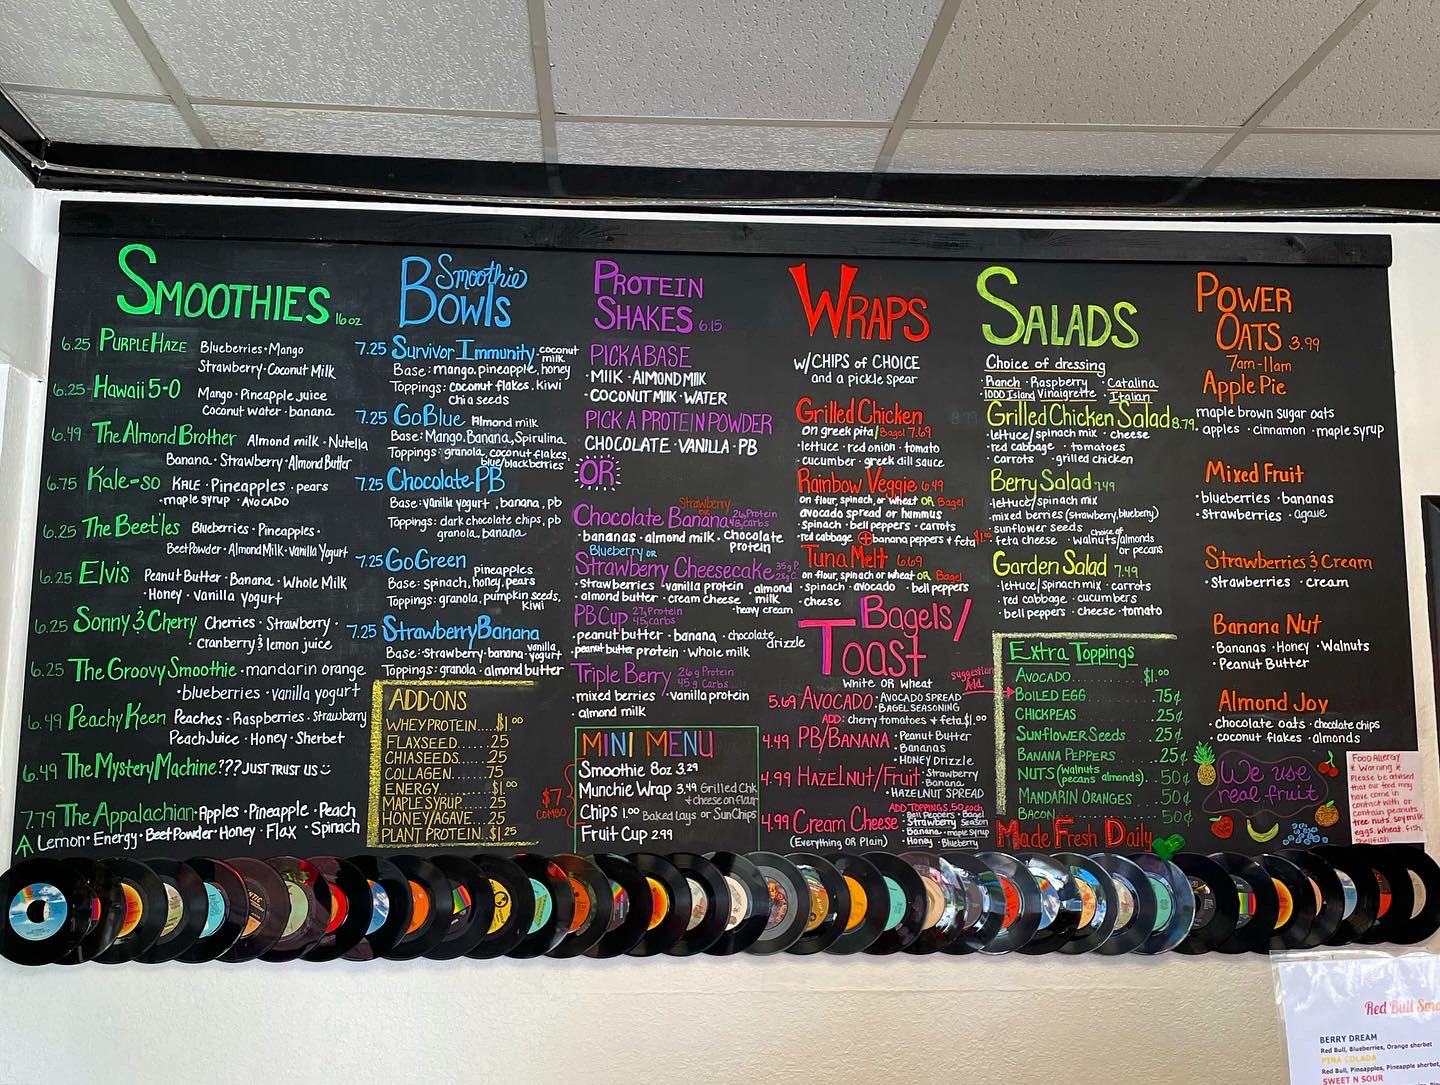 SMOOTHIES 16oz
6.25 PURPLE HAZE Blueberries · Mango
Strawberry · Coconut Milk
6.25 Hawaii 5-0 Mango · Pineapple juice
Coconut water · banana
6.49 The Almond Brother Almond milk · Nutella
Banana · Strawberry · Almond Butter
6.75 Kale-so KALE · Pineapples · pears
· maple syrup · AVOCADO
6.25 The Beet'les Blueberries · Pineapples ·
Beet Powder · Almond Milk · Vanilla Yogurt
6.25 Elvis Peanut Butter · Banana · Whole Milk
· Honey · Vanilla yogurt
6.25 Sonny & Cherry Cherries · Strawberry ·
cranberry & lemon juice
6.25 The Groovy Smoothie · mandarin orange
· blueberries · vanilla yogurt
6.49 Peachy Keen Peaches · Raspberries · Strawberry
Peach Juice · Honey · Sherbet
6.49 The Mystery Machine ??? JUST TRUST US
7.79 The Appalachian · Apples · Pineapple · Peach
Lemon · Energy · Beet Powder · Honey · Flax · Spinach
Smoothie
BOWLS
7.25 Survivor Immunity · coconut
milk
Base: mango, pineapple, honey
Toppings: coconut flakes, kiwi
chia seeds
7.25 GoBlue Almond milk
Base: Mango, Banana, Spirulina
Toppings: granola, coconut flakes,
blue/blackberries
7.25 Chocolate PB
Base: vanilla yogurt, banana, pb
Toppings: dark chocolate chips, pb
granola, banana
7.25 GoGreen pineapples
Base: spinach, honey, pears
Toppings: granola, pumpkin seeds,
kiwi
7.25 Strawberry Banana vanilla
Base: strawberry · banana yogurt
Toppings: granola · almond butter
ADD-ONS
WHEY PROTEIN....$1.00
FLAXSEED......25
CHIASEEDS.....25
COLLAGEN.....75
ENERGY.......$1.00
MAPLE SYRUP....25
HONEY/AGAVE...25
PLANT PROTEIN..$1.25
PROTEIN
SHAKES 6.15
PICK A BASE
· MILK · ALMOND MILK
· COCONUT MILK · WATER
PICK A PROTEIN POWDER
CHOCOLATE · VANILLA · PB
OR
Strawberry
or
Chocolate Banana 26g Protein
48g carbs
· bananas · almond milk · chocolate
Protein
Blueberry or
Strawberry Cheesecake 35g P
· strawberries · vanilla protein · almond
· almond butter · cream cheese milk
· heavy cream
PB Cup 27g Protein
45g carbs
· peanut butter · banana · chocolate
drizzle
· peanut butter protein · whole milk
Triple Berry 26g Protein
45g Carbs
· mixed berries · vanilla protein
· almond milk
MINI MENU
Smoothie 8oz 3.29
Munchie Wrap 3.49 Grilled Chk
+ cheese on flour
Chips 1.00 Baked Lays or SunChips
Fruit Cup 2.99
$7
COMBO
WRAPS
w/CHIPS of CHOICE
and a pickle spear
Grilled Chicken
on greek pita/Bagel 7.69
· lettuce · red onion · tomato
· cucumber · greek dill sauce
Rainbow Veggie 6.49
on flour, spinach, or wheat OR Bagel
avocado spread or hummus
· spinach · bell peppers · carrots
· red cabbage + banana peppers + feta $1.00
Tuna Melt 6.69
on flour, spinach or wheat OR Bagel
· spinach · avocado · bell peppers
· cheese
Bagels/
Toast
White OR Wheat
suggestion
Add
5.69 AVOCADO · AVOCADO SPREAD
· BAGEL SEASONING
ADD: cherry tomatoes + feta $1.00
4.49 PB/BANANA · Peanut Butter
· Bananas
· HONEY Drizzle
4.99 HAZELNUT/FRUIT · Strawberry
· Banana
· HAZELNUT SPREAD
4.99 CREAM CHEESE ADD TOPPINGS .50 each
· Bell Peppers · Bagel
· Strawberry Season
· Banana · maple Syrup
(Everything OR Plain) · Honey · Blueberry
SALADS
Choice of dressing
· Ranch · Raspberry · Catalina
1000 Island Vinaigrette · Italian
Grilled Chicken Salad 8.79
· lettuce/spinach mix · cheese
· red cabbage · tomatoes
· carrots · grilled chicken
Berry Salad 7.49
· lettuce/spinach mix
· mixed berries (strawberry, blueberry)
· sunflower seeds Choice of
· feta cheese · walnuts/almonds
or pecans
Garden Salad 7.49
· lettuce/spinach mix · carrots
· red cabbage · cucumbers
· bell peppers · cheese · tomato
EXTRA TOPPINGS
AVOCADO..........$1.00
BOILED EGG 75¢
CHICKPEAS .25¢
Sunflower Seeds .25¢
BANANA PEPPERS .25¢
NUTS (walnuts pecans almonds) .50¢
MANDARIN ORANGES .50¢
BACON 50¢
Made Fresh Daily
POWER
OATS 3.99
7am-11am
Apple Pie
maple brown sugar oats
· apples · cinnamon · maple syrup
Mixed Fruit
· blueberries · bananas
· strawberries · agave
Strawberries & Cream
· strawberries · cream
Banana Nut
· Bananas · Honey · Walnuts
· Peanut Butter
Almond Joy
· chocolate oats · chocolate chips
· coconut flakes · almonds
We use
real fruit
FOOD ALLERGY
* Warning *
Please be advised
that our food may
have come in
contact with or
contain peanuts,
tree nuts, soy, milk,
eggs, wheat, fish,
shellfish.
Red Bull
BERRY DREAM
Red Bull, Blueberries, Orange sherbet
PINA COLADA
Red Bull, Pineapples, Pineapple sherbet,
SWEET N SOUR